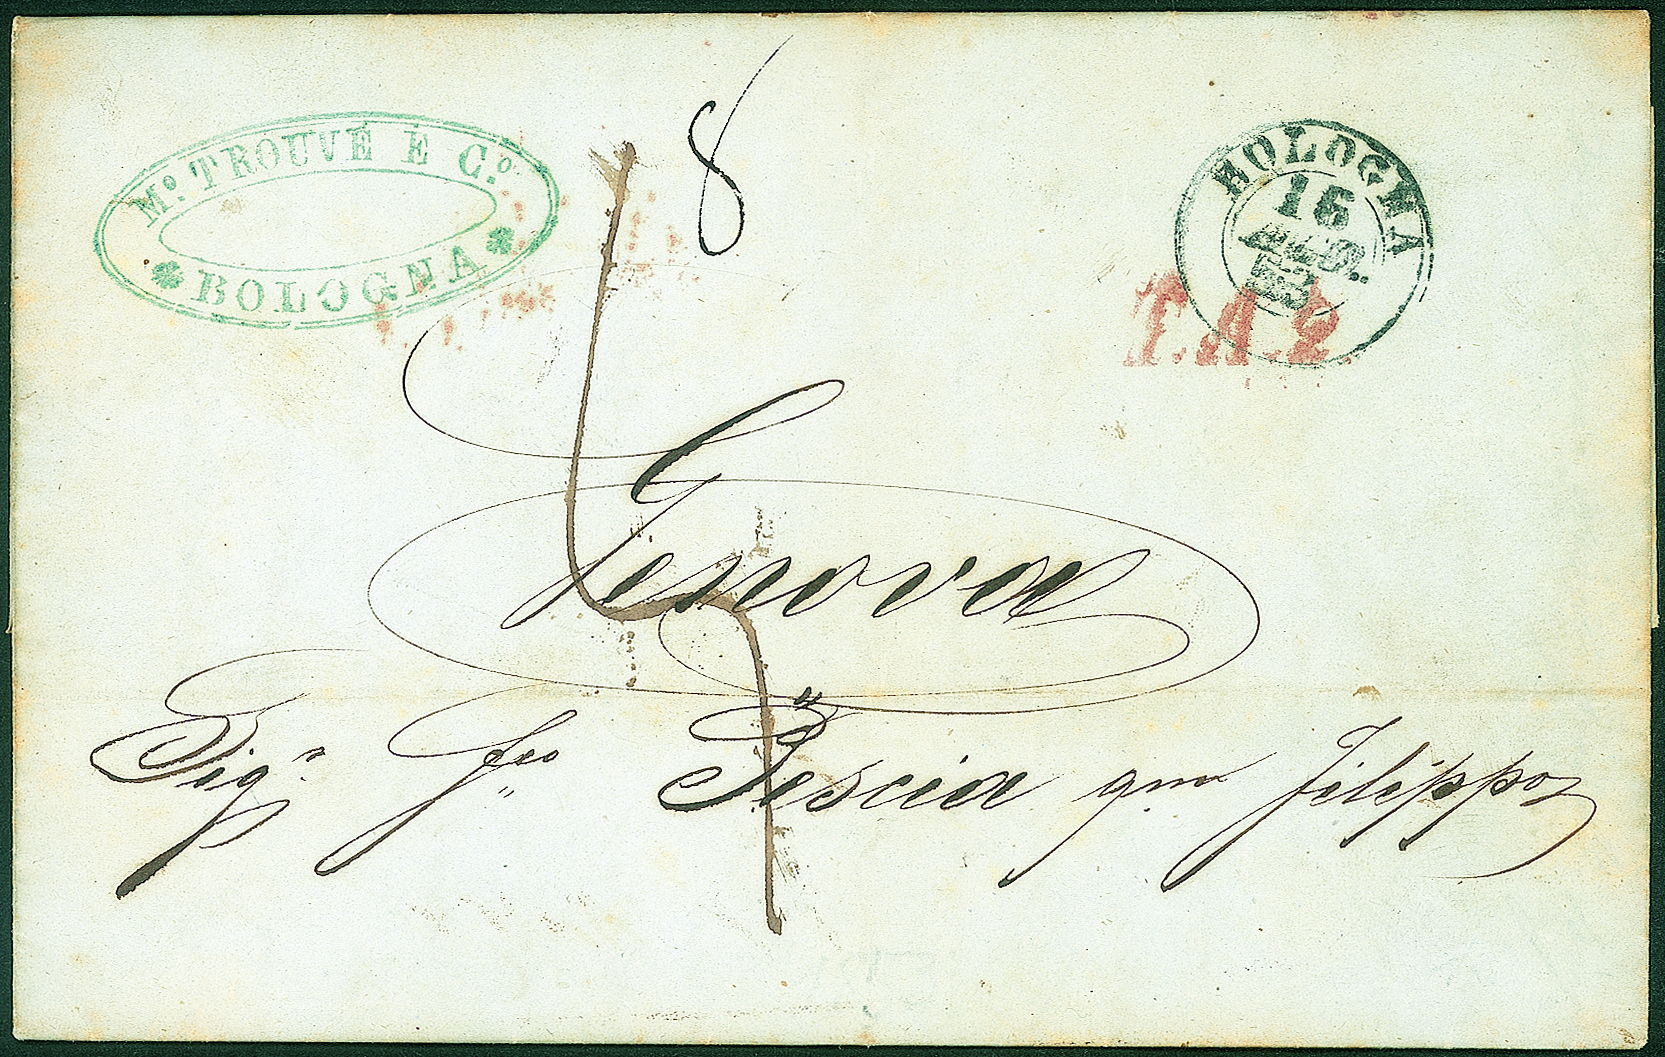 M.º TROUVÉ E C.º
BOLOGNA
8
BOLOGNA
16
T.A.2.
Genova
Sig.r f.co Pescia qm filippo